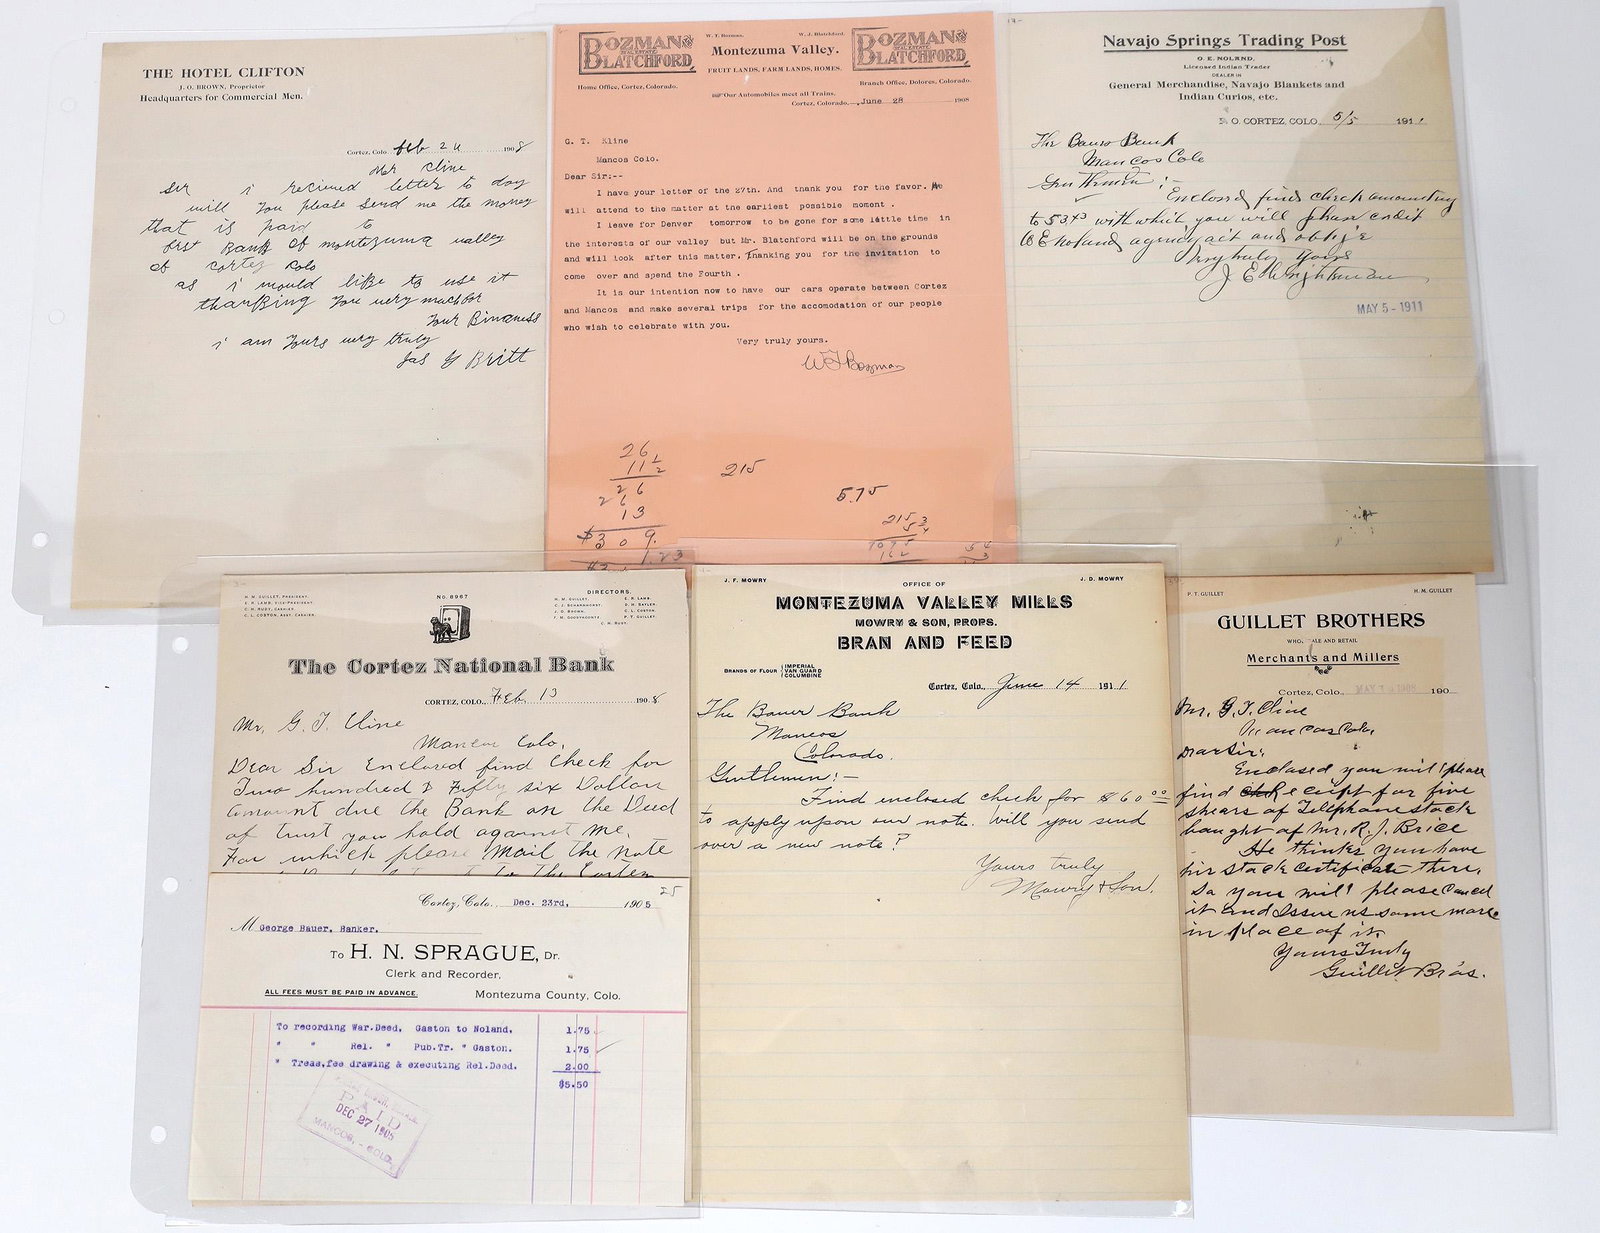 THE HOTEL CLIFTON
J. O. BROWN, Proprietor
Headquarters for Commercial Men.
Cortez, Colo. Feb 24 1908
Mr Cline
Sir i recieved letter to day
will you please send me the money
that is paid to
first Bank of montezuma valley
of cortez colo
as i would like to use it
thanking you very much for
your Binzness
i am yours very truly
Jas G Britt
BOZMAN &
REAL ESTATE
BLATCHFORD.
W. F. Bozman. W. J. Blatchford.
Montezuma Valley.
FRUIT LANDS, FARM LANDS, HOMES.
BOZMAN &
REAL ESTATE
BLATCHFORD.
Home Office, Cortez, Colorado.
Branch Office, Dolores, Colorado.
Our Automobiles meet all Trains.
Cortez, Colorado. June 28 1908
G. T. Kline
Mancos Colo.
Dear Sir:--
I have your letter of the 27th. And thank you for the favor. We
will attend to the matter at the earliest possible moment .
I leave for Denver tomorrow to be gone for some little time in
the interests of our valley but Mr. Blatchford will be on the grounds
and will look after this matter. Thanking you for the invitation to
come over and spend the Fourth .
It is our intention now to have our cars operate between Cortez
and Mancos and make several trips for the accomodation of our people
who wish to celebrate with you.
Very truly yours.
W F Bozman
26
11 1/2
26
26
13
$309.
215
5.75
215
5 3/4
1075
Navajo Springs Trading Post
O. E. NOLAND,
Licensed Indian Trader
DEALER IN
General Merchandise, Navajo Blankets and
Indian Curios, etc.
P. O. CORTEZ, COLO. 5/5 1911
The Bauer Bank
Mancos Colo
Gentlemen:-
Enclosed find check amounting
to 5343 with which you will please credit
O E Noland agency act and oblige
Very truly yours
MAY 5 - 1911
H. M. GUILLET, PRESIDENT.
E. R. LAMB, VICE-PRESIDENT.
C. H. RUDY, CASHIER.
C. L. COSTON, ASST. CASHIER.
No. 8967
DIRECTORS.
H. M. GUILLET. E. R. LAMB.
C. J. SCHARNHORST. D. H. SAYLER.
J. O. BROWN. C. L. COSTON.
F. M. GOODYKOONTZ P. T. GUILLET.
C. H. RUDY.
The Cortez National Bank
CORTEZ, COLO., Feb 13 1908
Mr. G. T. Cline
Mancos Colo.
Dear Sir Enclosed find check for
Two hundred & Fifty six Dollars
amount due the Bank on the Deed
of trust you hold against me.
For which please Mail the note
to the Cortez
25
Cortez, Colo., Dec. 23rd, 1905
M George Bauer, Banker.
To H. N. SPRAGUE, Dr.
Clerk and Recorder,
ALL FEES MUST BE PAID IN ADVANCE. Montezuma County, Colo.
To recording War.Deed, Gaston to Noland. 1.75
" " Rel. " Pub.Tr. " Gaston. 1.75
" Treas.fee drawing & executing Rel.Deed. 2.00
$5.50
PAID
DEC 27 1905
MANCOS, - COLO.
J. F. MOWRY J. D. MOWRY
OFFICE OF
MONTEZUMA VALLEY MILLS
MOWRY & SON, PROPS.
BRAN AND FEED
BRANDS OF FLOUR { IMPERIAL
VAN GUARD
COLUMBINE
Cortez, Colo., June 14 1911
The Bauer Bank
Mancos
Colorado.
Gentlemen:-
Find enclosed check for $60.00
to apply upon our note. Will you send
over a new note?
Yours truly
Mowry & Son.
P. T. GUILLET H. M. GUILLET
GUILLET BROTHERS
WHOLESALE AND RETAIL
Merchants and Millers
Cortez, Colo., 190
Mr. G. T. Cline
Mancos Colo,
Dear Sir;
Enclosed you will please
find receipt for five
shears of Telephone stock
baught of Mr. R. J. Brice
He thinks you have
his stack certificate there,
So you will please cancel
it and issue us same more
in place of it.
Yours Truly
Guillet Bros.